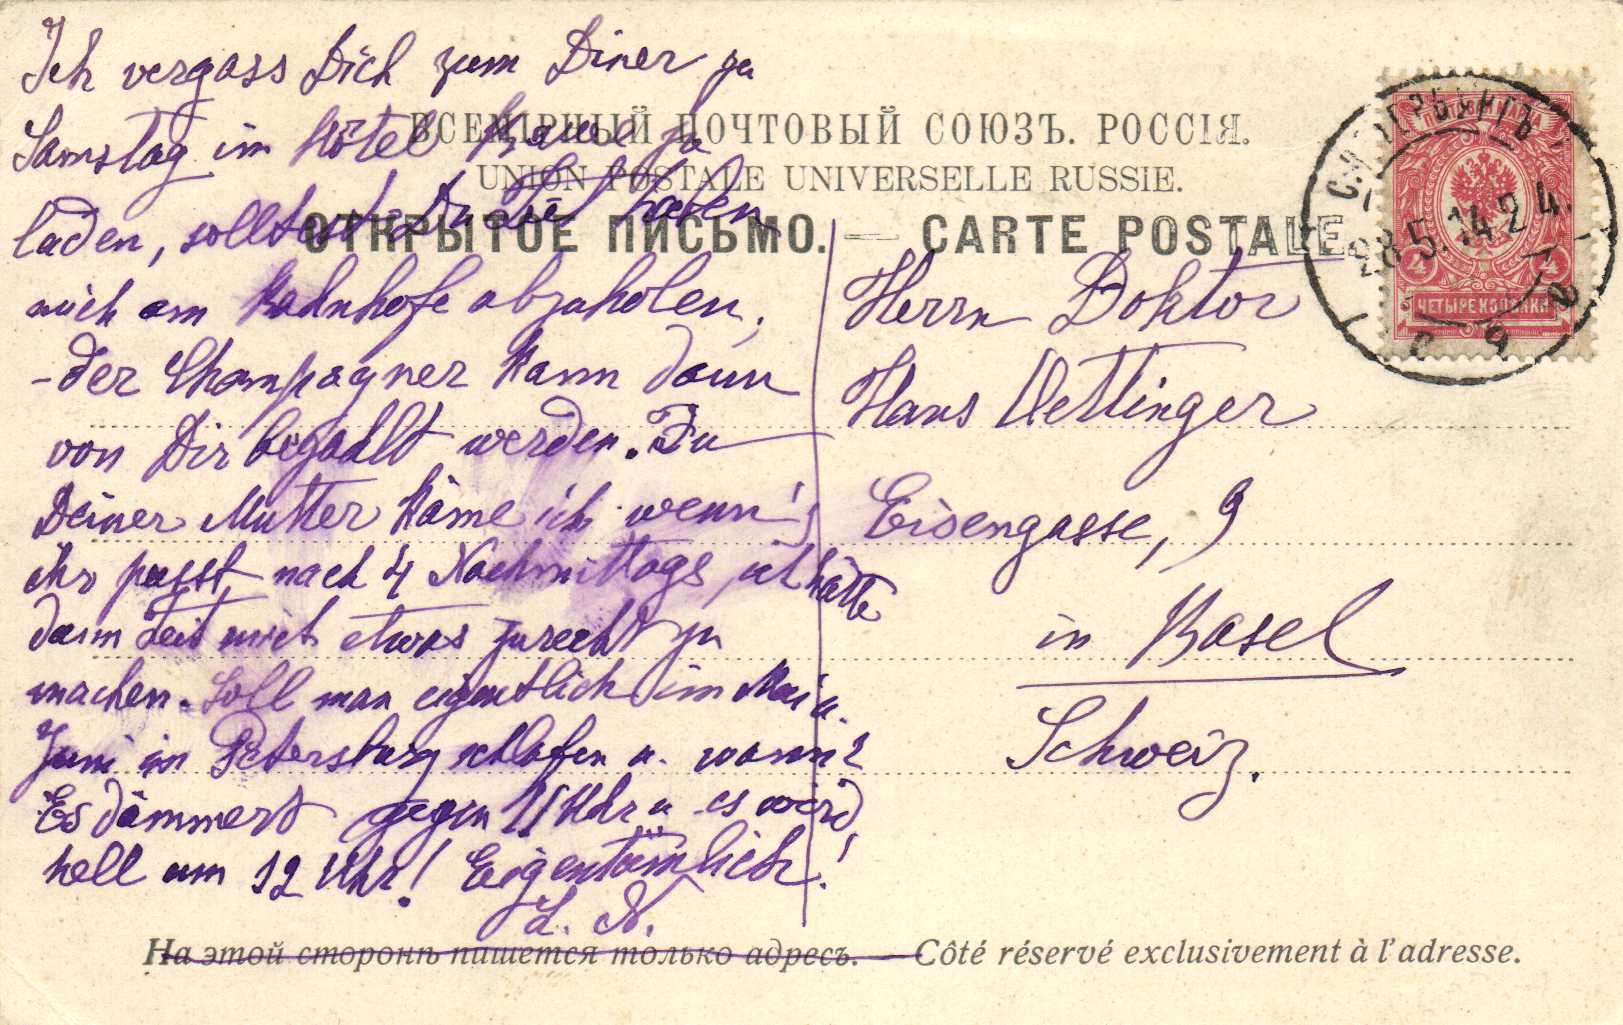 Ich vergass Dich zum Diner zu
Samstag im Hôtel zu
laden, solltest Du Zeit haben
mich am Bahnhofe abzuholen,
- der Champagner kann dann
von Dir bezahlt werden. Zu
Deiner Mutter käme ich wenn's
ihr passt nach 4 Nachmittags, ich hätte
dann Zeit mich etwas zurecht zu
machen. Soll man eigentlich im Mai u.
Juni in Petersburg schlafen u. wann?
Es dämmert gegen 11 Uhr u. es wird
hell um 12 Uhr! Eigentümlich!
L. N.
ВСЕМІРНЫЙ ПОЧТОВЫЙ СОЮЗЪ. РОССІЯ.
UNION POSTALE UNIVERSELLE RUSSIE.
ОТКРЫТОЕ ПИСЬМО. — CARTE POSTALE
Herrn Doktor
Hans Oettinger
Eisengasse, 9
in Basel
Schweiz.
С.ПЕТЕРБУРГЪ
28.5.14.2 4.
ПОЧТОВАЯ МАРКА
4 4
ЧЕТЫРЕ КОПѢЙКИ
На этой сторонѣ пишется только адресъ. — Côté réservé exclusivement à l'adresse.